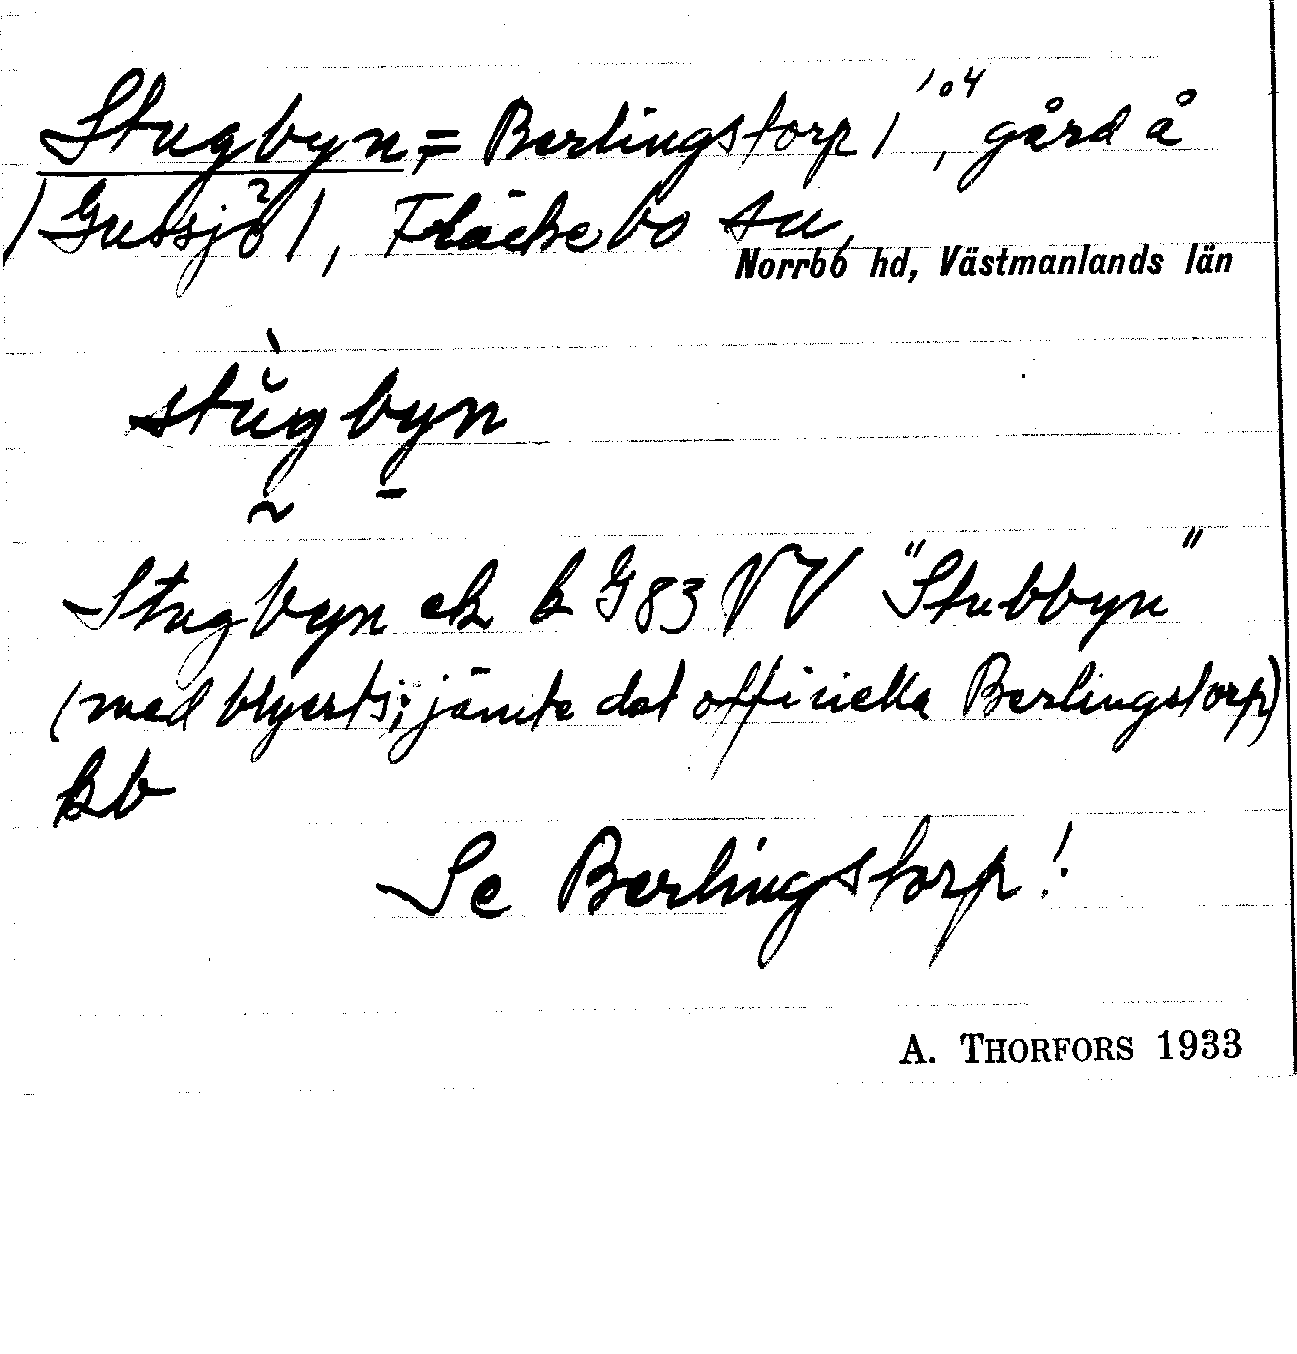 Stugbyn, = Berlingstorp 1 104, gård å
/Gussjö 1, Fläckebo sn,
Norrbo hd, Västmanlands län
stŭ̀gbyn
Stugbyn ek k G 83 VV "Stubbyn"
(med blyerts; jämte det officiella Berlingstorp)
kb
Se Berlingstorp!
A. THORFORS 1933